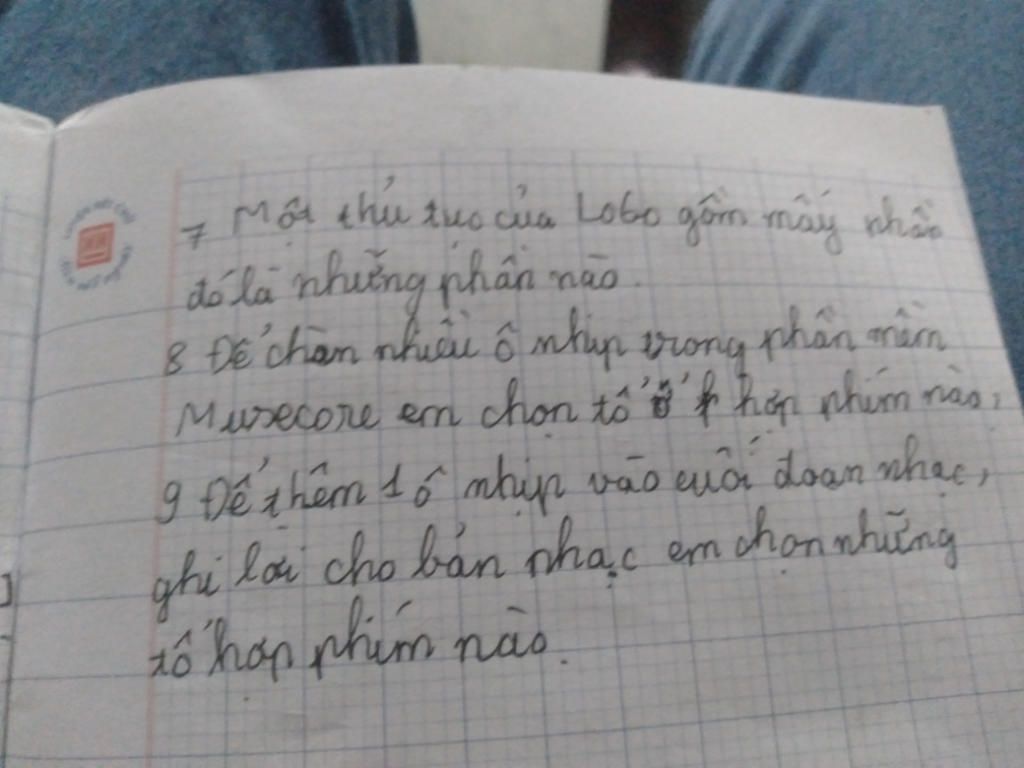 7 Một thủ tục của Lobo gồm mấy phần
đó là những phần nào.
8 Để chọn nhiều ô nhịp trong phần mềm
Musecore em chọn tổ hợp phím nào,
9 Để thêm 1 ô nhịp vào cuối đoạn nhạc,
ghi lời cho bản nhạc em chọn những
tổ hợp phím nào.